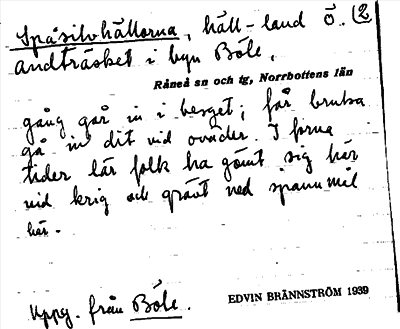 Spåsilvhällorna, häll-land ö. (2
andträsket i byn Böle,
Råneå sn och tg, Norrbottens län
gång går in i berget; får bruka
gå in dit vid oväder. I forna
tider lär folk ha gömt sig här
vid krig och grävt ned spannmål
här.
Uppg. från Böle.
EDVIN BRÄNNSTRÖM 1939